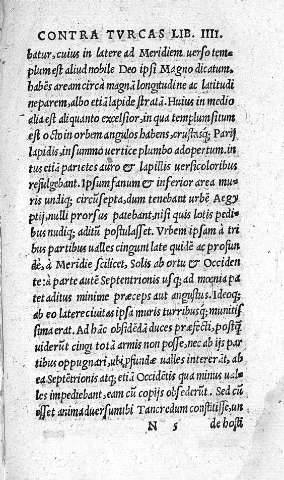 CONTRA TVRCAS LIB. IIII.
batur, cuius in latere ad Meridiem uerso tem-
plum est aliud nobile Deo ipsi Magno dicatum,
habēs aream circa magnā longitudine ac latitudi
ne parem, albo etiā lapide stratā. Huius in medio
alia est aliquanto excelsior, in qua templum situm
est octo in orbem angulos habens, crustasq; Parij
lapidis, in summo uertice plumbo adopertum. in
tus etiā parietes auro & lapillis uersicoloribus
refulgebant. Ipsum fanum & inferior area mu-
ris undiq; circūsepta, dum tenebant urbē Aegy
ptij, nulli prorsus patebant, nisi quis lotis pedi
bus nudisq; aditū postulasset. Vrbem ipsam à tri
bus partibus ualles cingunt late quidē ac profun
dè, à Meridie scilicet, Solis ab ortu & Occiden
te: à parte autē Septentrionis usq; ad mœnia pa
tet aditus minime præceps aut angustus. Ideoq;
ab eo latere ciuitas ipsa muris turribusq; munitis-
sima erat. Ad hāc obsidēdā duces præfecti, postq̄
uiderūt cingi totā armis non posse, nec ab ijs par
tibus oppugnari, ubi ꝓfundæ ualles intererāt, ab
ea Septētrionis atq; etiā Occidētis qua minus ual-
les impediebant, eam cū copijs obsederūt. Sed cū
esset animaduersum ibi Tancredum constitisse, un
N 5 de hosti